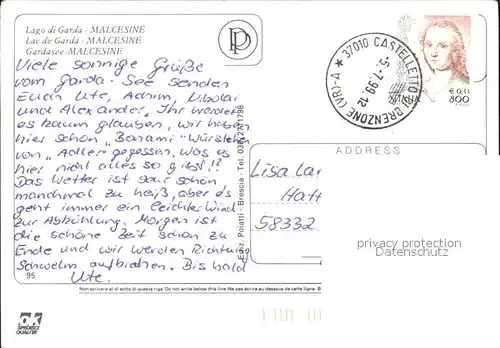 Lago di Garda - MALCESINE
Lac de Garda - MALCESINE
Gardasee-MALCESINE
Viele sonnige Grüße
vom Garda-See senden
Euch Ute, Achim, Nikolai
und Alexander. Ihr werdet
es kaum glauben, wir haben
hier schon "Bonami" Würstchen
von "Adler" gegessen. Was es
hier nicht alles so gibt!!
Das Wetter ist sehr schön
manchmal zu heiß, aber es
geht immer ein leichter Wind
zur Abkühlung. Morgen ist
die schöne Zeit schon zu
Ende und wir werden Richtung
Schwelm aufbrechen. Bis bald
Ute.
95
Ediz. Poiatti - Brescia - Tel.
37010 CASTELLETTO BRENZONE (VR)-A
-5.-7.99.12
€ 0,41
800
ADDRESS
Lisa
Hatt
58332
privacy protection
Datenschutz
Non scrivere al di sotto di questa riga. Do not write below this line. Ne pas écrire au dessous de cette ligne.
ak
SPEDISCI
QUALITÄT